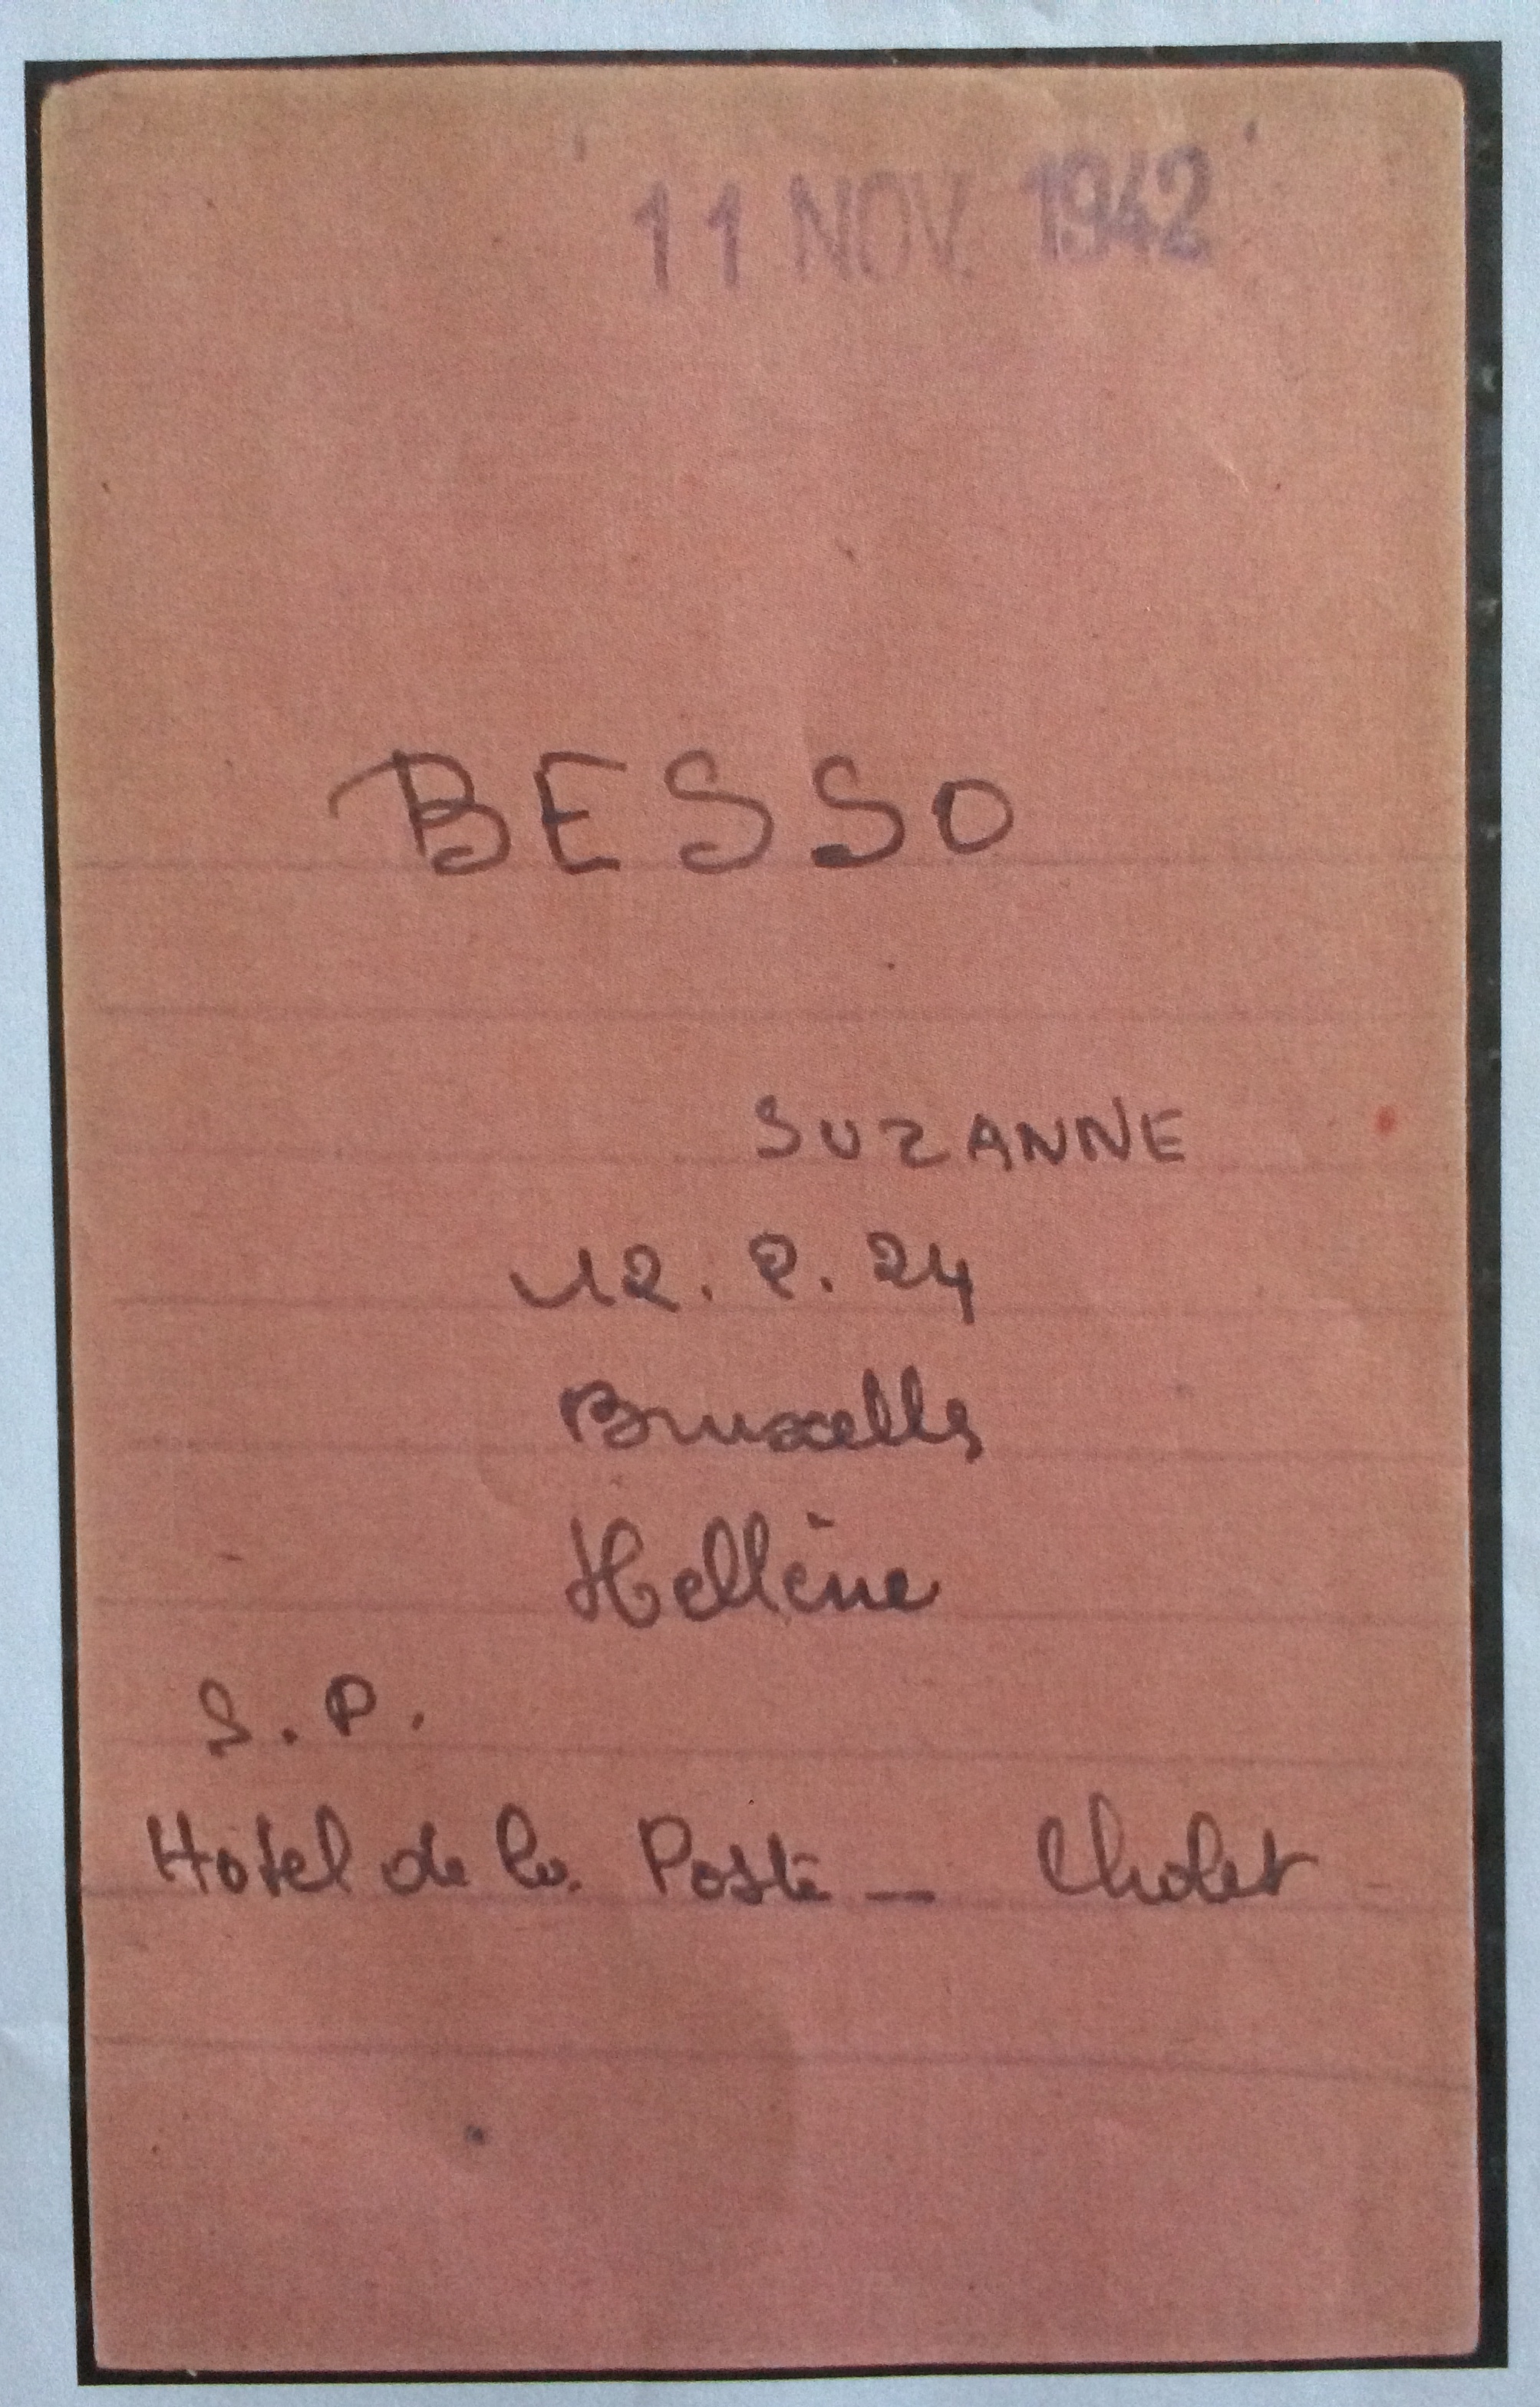 11 NOV. 1942
BESSO
SUZANNE
12. 2. 24
Bruxelles
Hellène
S. P.
Hôtel de la Poste — Cholet